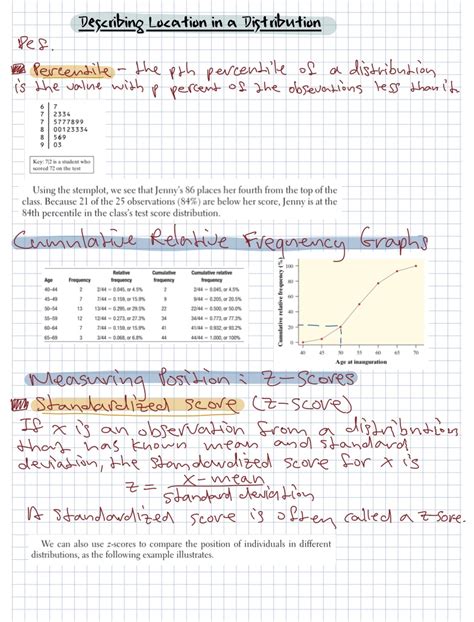 Describing Location in a Distribution
Def.
Percentile - the pth percentile of a distribution
is the value with p percent of the observations less than it
6 | 7
7 | 2334
7 | 5777899
8 | 00123334
8 | 569
9 | 03
Key: 7|2 is a student who
scored 72 on the test
Using the stemplot, we see that Jenny's 86 places her fourth from the top of the
class. Because 21 of the 25 observations (84%) are below her score, Jenny is at the
84th percentile in the class's test score distribution.
Cumulative Relative Frequency Graphs
Age Frequency Relative frequency Cumulative frequency Cumulative relative frequency
40–44 2 2/44 = 0.045, or 4.5% 2 2/44 = 0.045, or 4.5%
45–49 7 7/44 = 0.159, or 15.9% 9 9/44 = 0.205, or 20.5%
50–54 13 13/44 = 0.295, or 29.5% 22 22/44 = 0.500, or 50.0%
55–59 12 12/44 = 0.273, or 27.3% 34 34/44 = 0.773, or 77.3%
60–64 7 7/44 = 0.159, or 15.9% 41 41/44 = 0.932, or 93.2%
65–69 3 3/44 = 0.068, or 6.8% 44 44/44 = 1.000, or 100%
Cumulative relative frequency (%)
100
80
60
40
20
0
40 45 50 55 60 65 70
Age at inauguration
Measuring Position: z-scores
Standardized score (z-score)
If x is an observation from a distribution
that has known mean and standard
deviation, the standardized score for x is
z = x-mean / standard deviation
A standardized score is often called a z-sore.
We can also use z-scores to compare the position of individuals in different
distributions, as the following example illustrates.